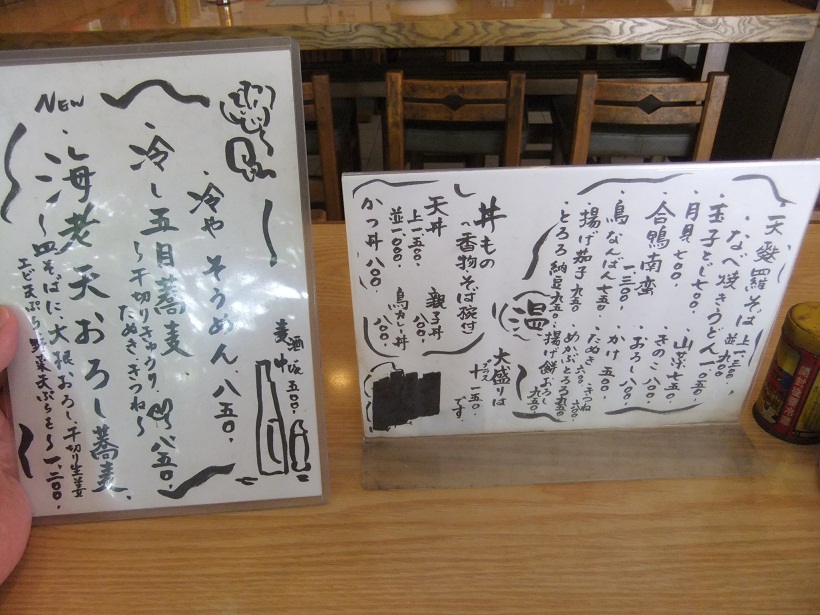 冷やそうめん 八五〇、
冷し五目蕎麦
〜千切りキャウリ、
たぬき、きつね〜
八五〇、
NEW
海老天おろし蕎麦、
〜皿そばに、大根おろし、千切り生姜
エビ天ぷら、野菜天ぷら
一、二〇〇、
酒
五〇〇、
天麩羅そば 上一三〇〇、
並九〇〇
・なべ焼きうどん
・玉子とじ七〇〇、
・月見七〇〇、
・山菜七五〇、
・合鴨南蛮
一三〇〇、
・きのこ八〇〇、
・おろし八〇〇、
・鳥なんばん七五〇、
・かけ五〇〇、
・揚げ茄子九五〇
・たぬき、きつね
六〇〇、
・とろろ納豆九五〇、
めかぶとろろ九五〇
・揚げ餅おろし
九五〇、
温
丼もの
(香物、そば椀付)
天丼
上一五〇〇、
並一〇〇〇、
親子丼
八〇〇、
かつ丼八〇〇、
鳥カレー丼
八〇〇、
大盛りは
プラス
十一五〇、
です。